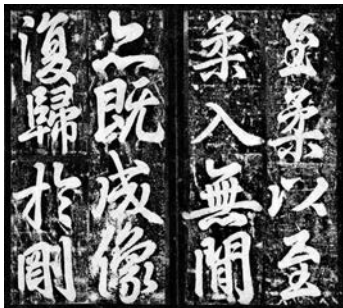 至柔以至
柔入無間
亦既成像
復歸於剛